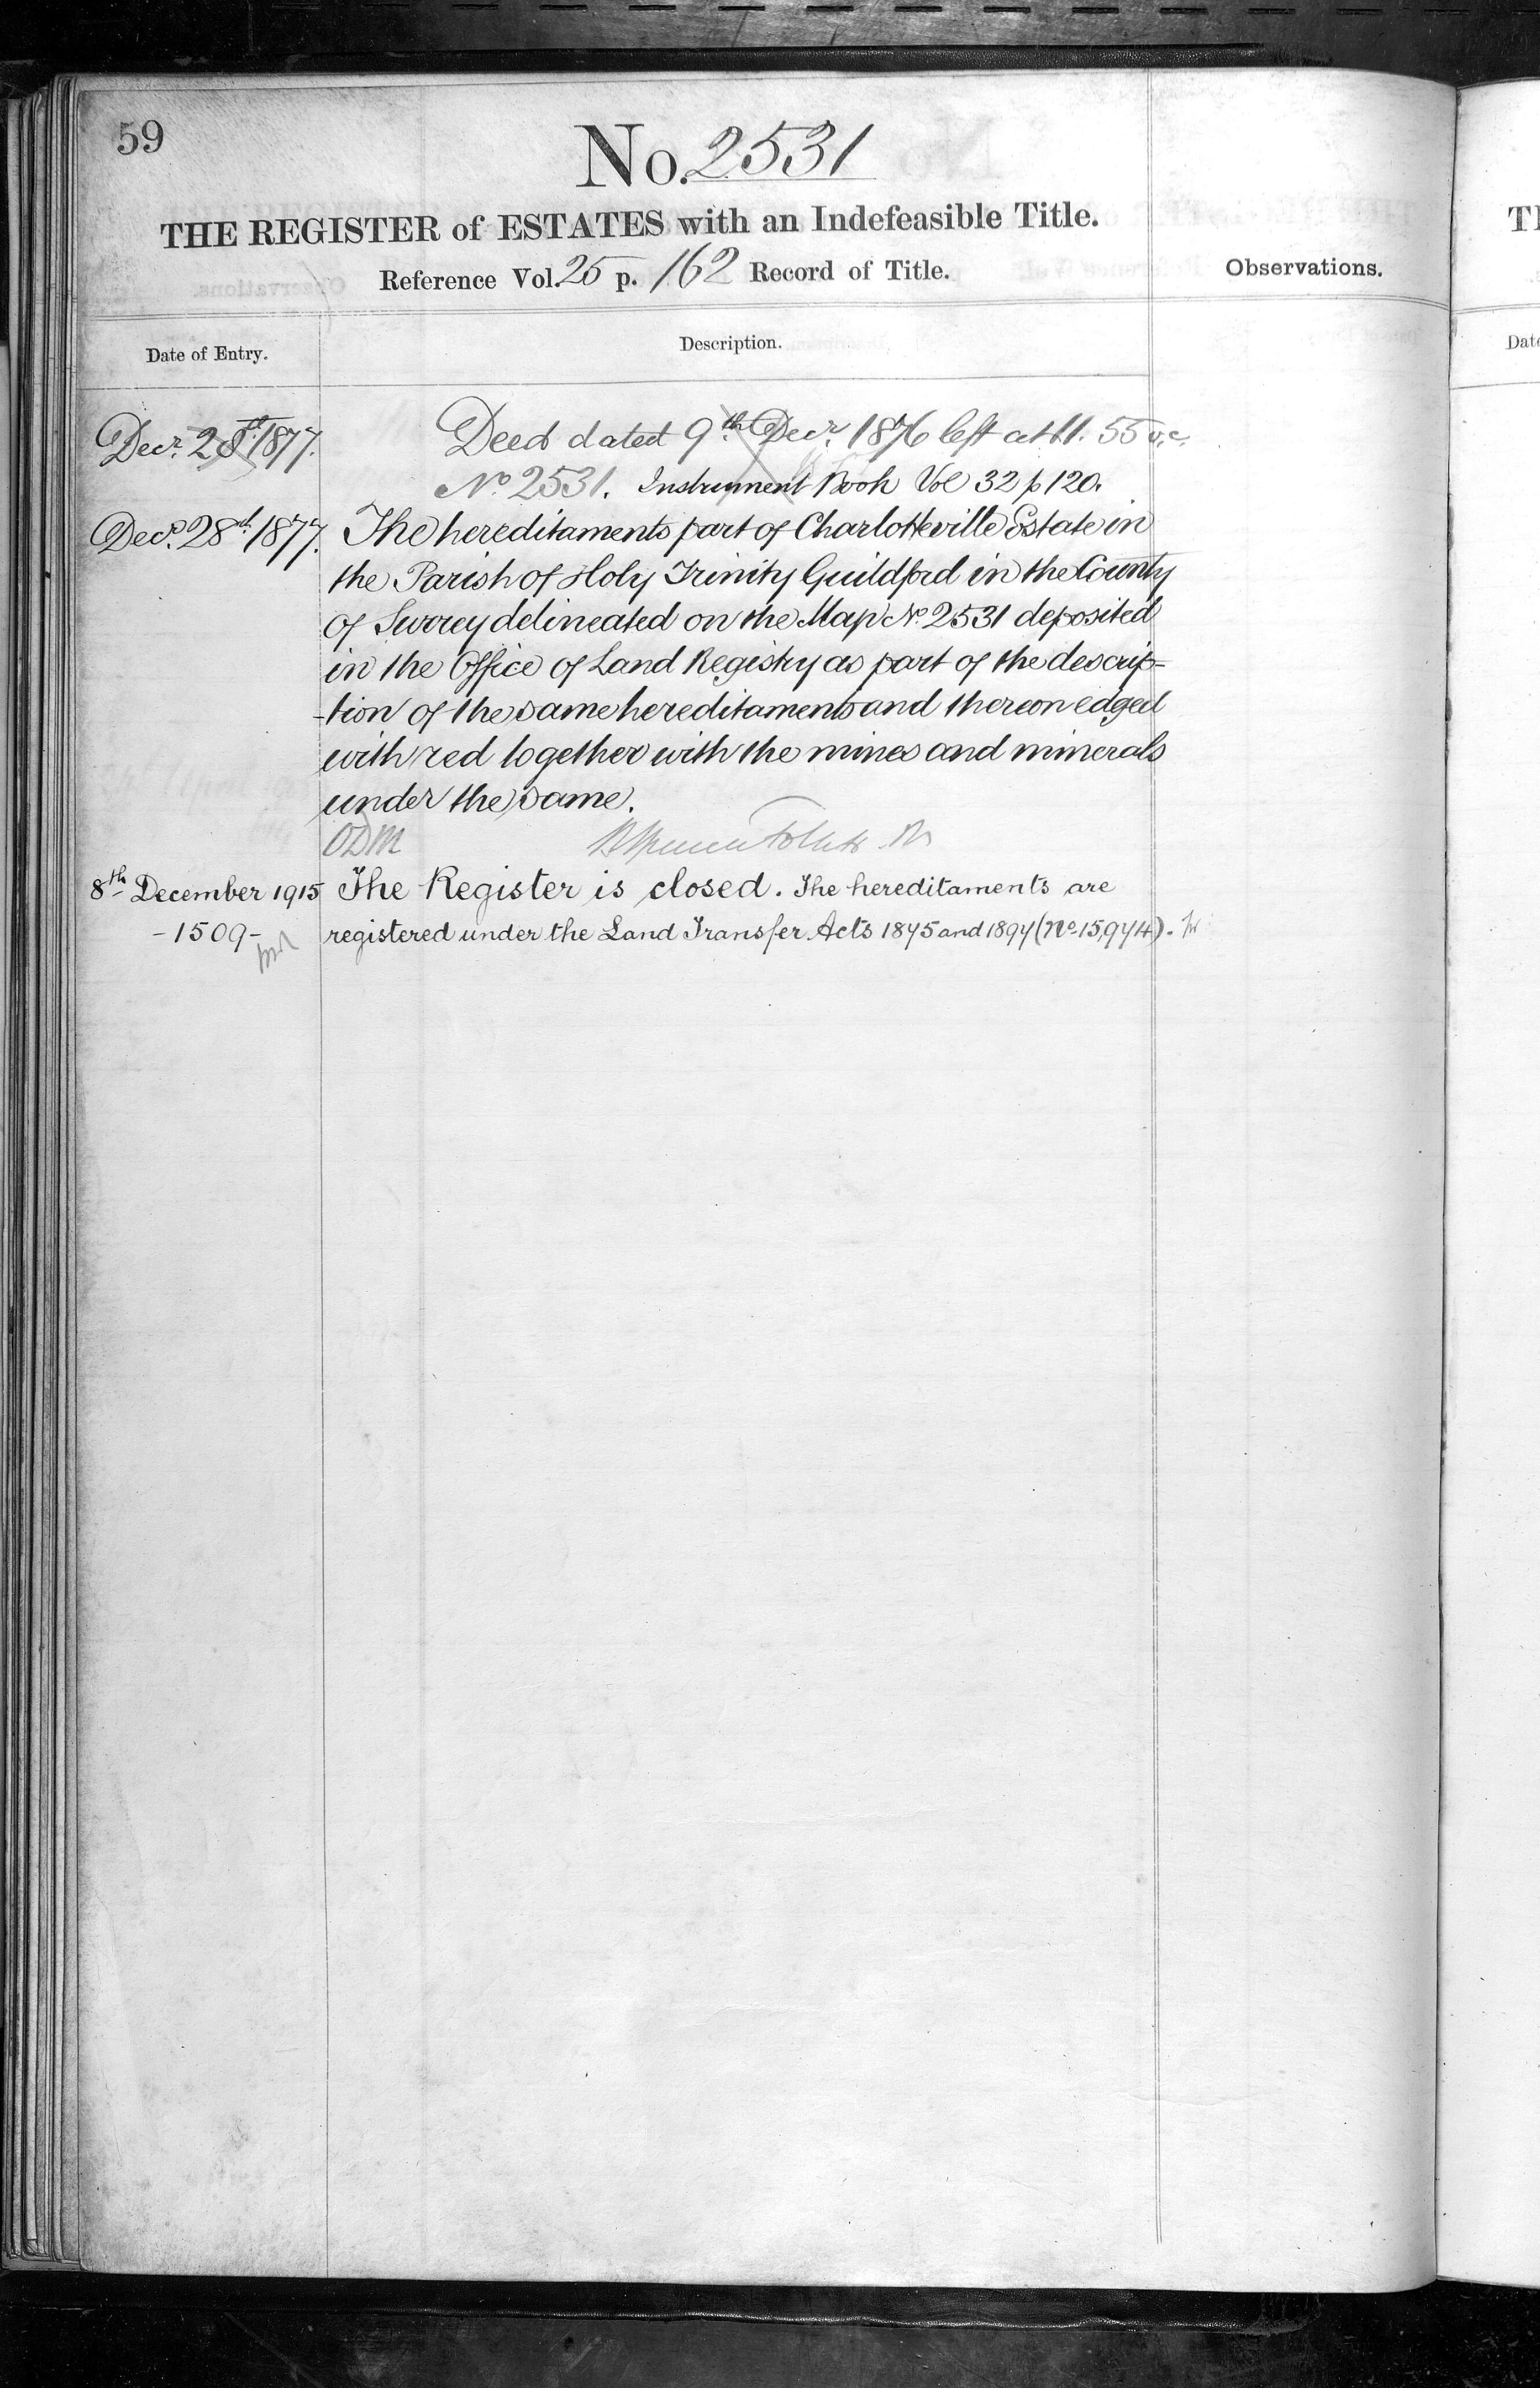 59
No. 2531
THE REGISTER of ESTATES with an Indefeasible Title.
Reference Vol. 25 p. 162 Record of Title.
Observations.
Date of Entry.
Description.
Decr. 28th 1877. Deed dated 9th Decr. 1876 left at 11.55 v.c.
No. 2531. Instrument Book Vol 32 p 120.
Decr. 28th 1877. The hereditaments part of Charlotteville Estate in
the Parish of Holy Trinity Guildford in the County
of Surrey delineated on the Map No. 2531 deposited
in the Office of Land Registry as part of the descrip=
-tion of the same hereditaments and thereon edged
with red together with the mines and minerals
under the same.
ODM
8th December 1915 The Register is closed. The hereditaments are
-1509- registered under the Land Transfer Acts 1875 and 1897 (No. 15,974).